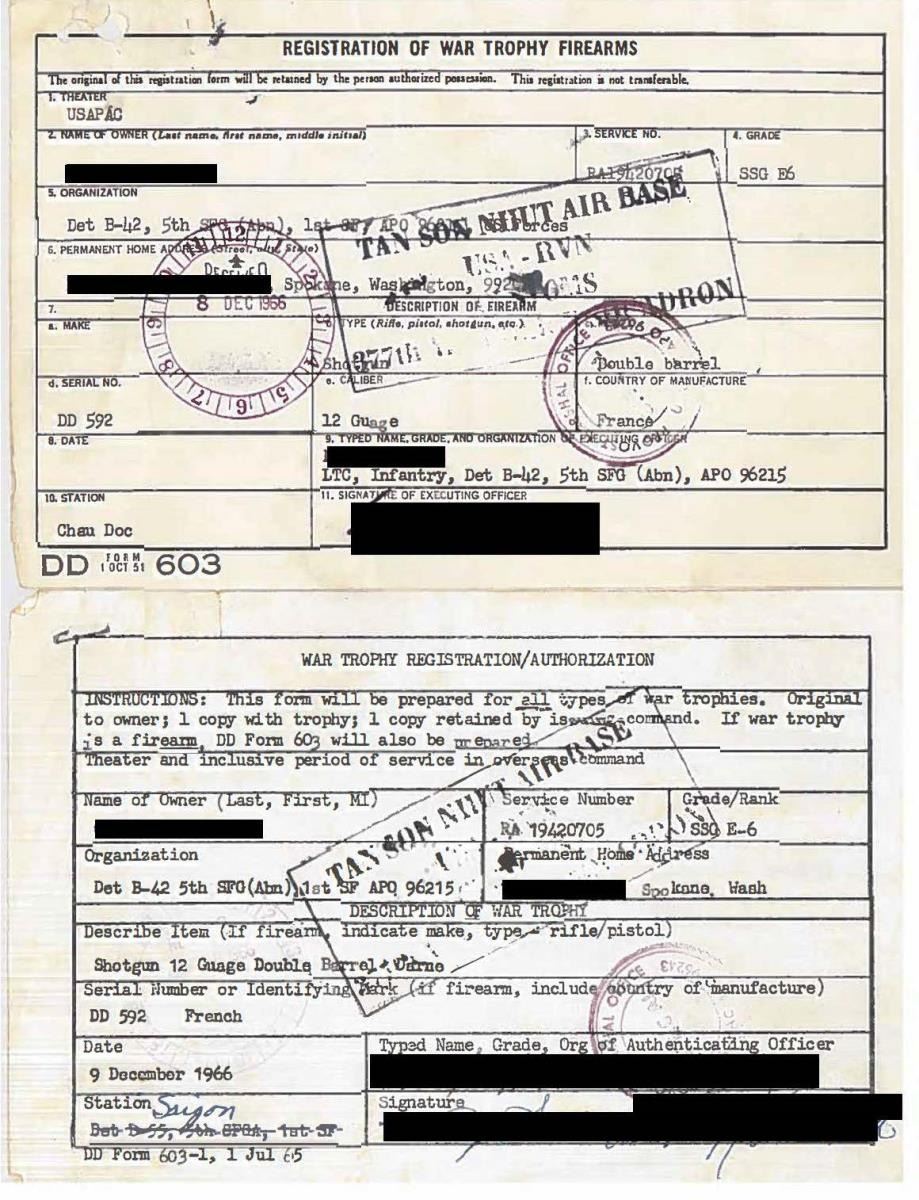 REGISTRATION OF WAR TROPHY FIREARMS
The original of this registration form will be retained by the person authorized possession. This registration is not transferable.
1. THEATER
USAPAC
2. NAME OF OWNER (Last name, first name, middle initial)
3. SERVICE NO.
4. GRADE
RA19420705
SSG E6
5. ORGANIZATION
Det B-42, 5th SFG (Abn), 1st SF, APO Forces
TAN SON NHUT AIR BASE
USA - RVN
377th
6. PERMANENT HOME ADDRESS (Street, State)
Spokane, Washington, 992
RECEIVED
8 DEC 1966
12 1 2 3 4 5 6 7 8 9
7.
DESCRIPTION OF FIREARM
a. MAKE
TYPE (Rifle, pistol, shotgun, etc.)
Shotgun
Double barrel
PROVOST MARSHAL OFFICE
d. SERIAL NO.
e. CALIBER
f. COUNTRY OF MANUFACTURE
DD 592
12 Guage
France
8. DATE
9. TYPED NAME, GRADE, AND ORGANIZATION OF EXECUTING OFFICER
LTC, Infantry, Det B-42, 5th SFG (Abn), APO 96215
10. STATION
11. SIGNATURE OF EXECUTING OFFICER
Chau Doc
DD FORM 1 OCT 51 603
WAR TROPHY REGISTRATION/AUTHORIZATION
INSTRUCTIONS: This form will be prepared for all types of war trophies. Original
to owner; 1 copy with trophy; 1 copy retained by issuing command. If war trophy
is a firearm, DD Form 603 will also be prepared.
Theater and inclusive period of service in overseas command
TAN SON NHUT AIR BASE
Name of Owner (Last, First, MI)
Service Number
Grade/Rank
RA 19420705
SSG E-6
Organization
Permanent Home Address
Det B-42 5th SFG(Abn),1st SF APO 96215
Spokane, Wash
DESCRIPTION OF WAR TROPHY
Describe Item (If firearm, indicate make, type - rifle/pistol)
Shotgun 12 Guage Double Barrel, Darne
Serial Number or Identifying Mark (if firearm, include country of manufacture)
DD 592 French
Date
Typed Name, Grade, Org of Authenticating Officer
9 December 1966
Station Saigon
Signature
Det B-55, 5th SFGA, 1st SF
DD Form 603-1, 1 Jul 65